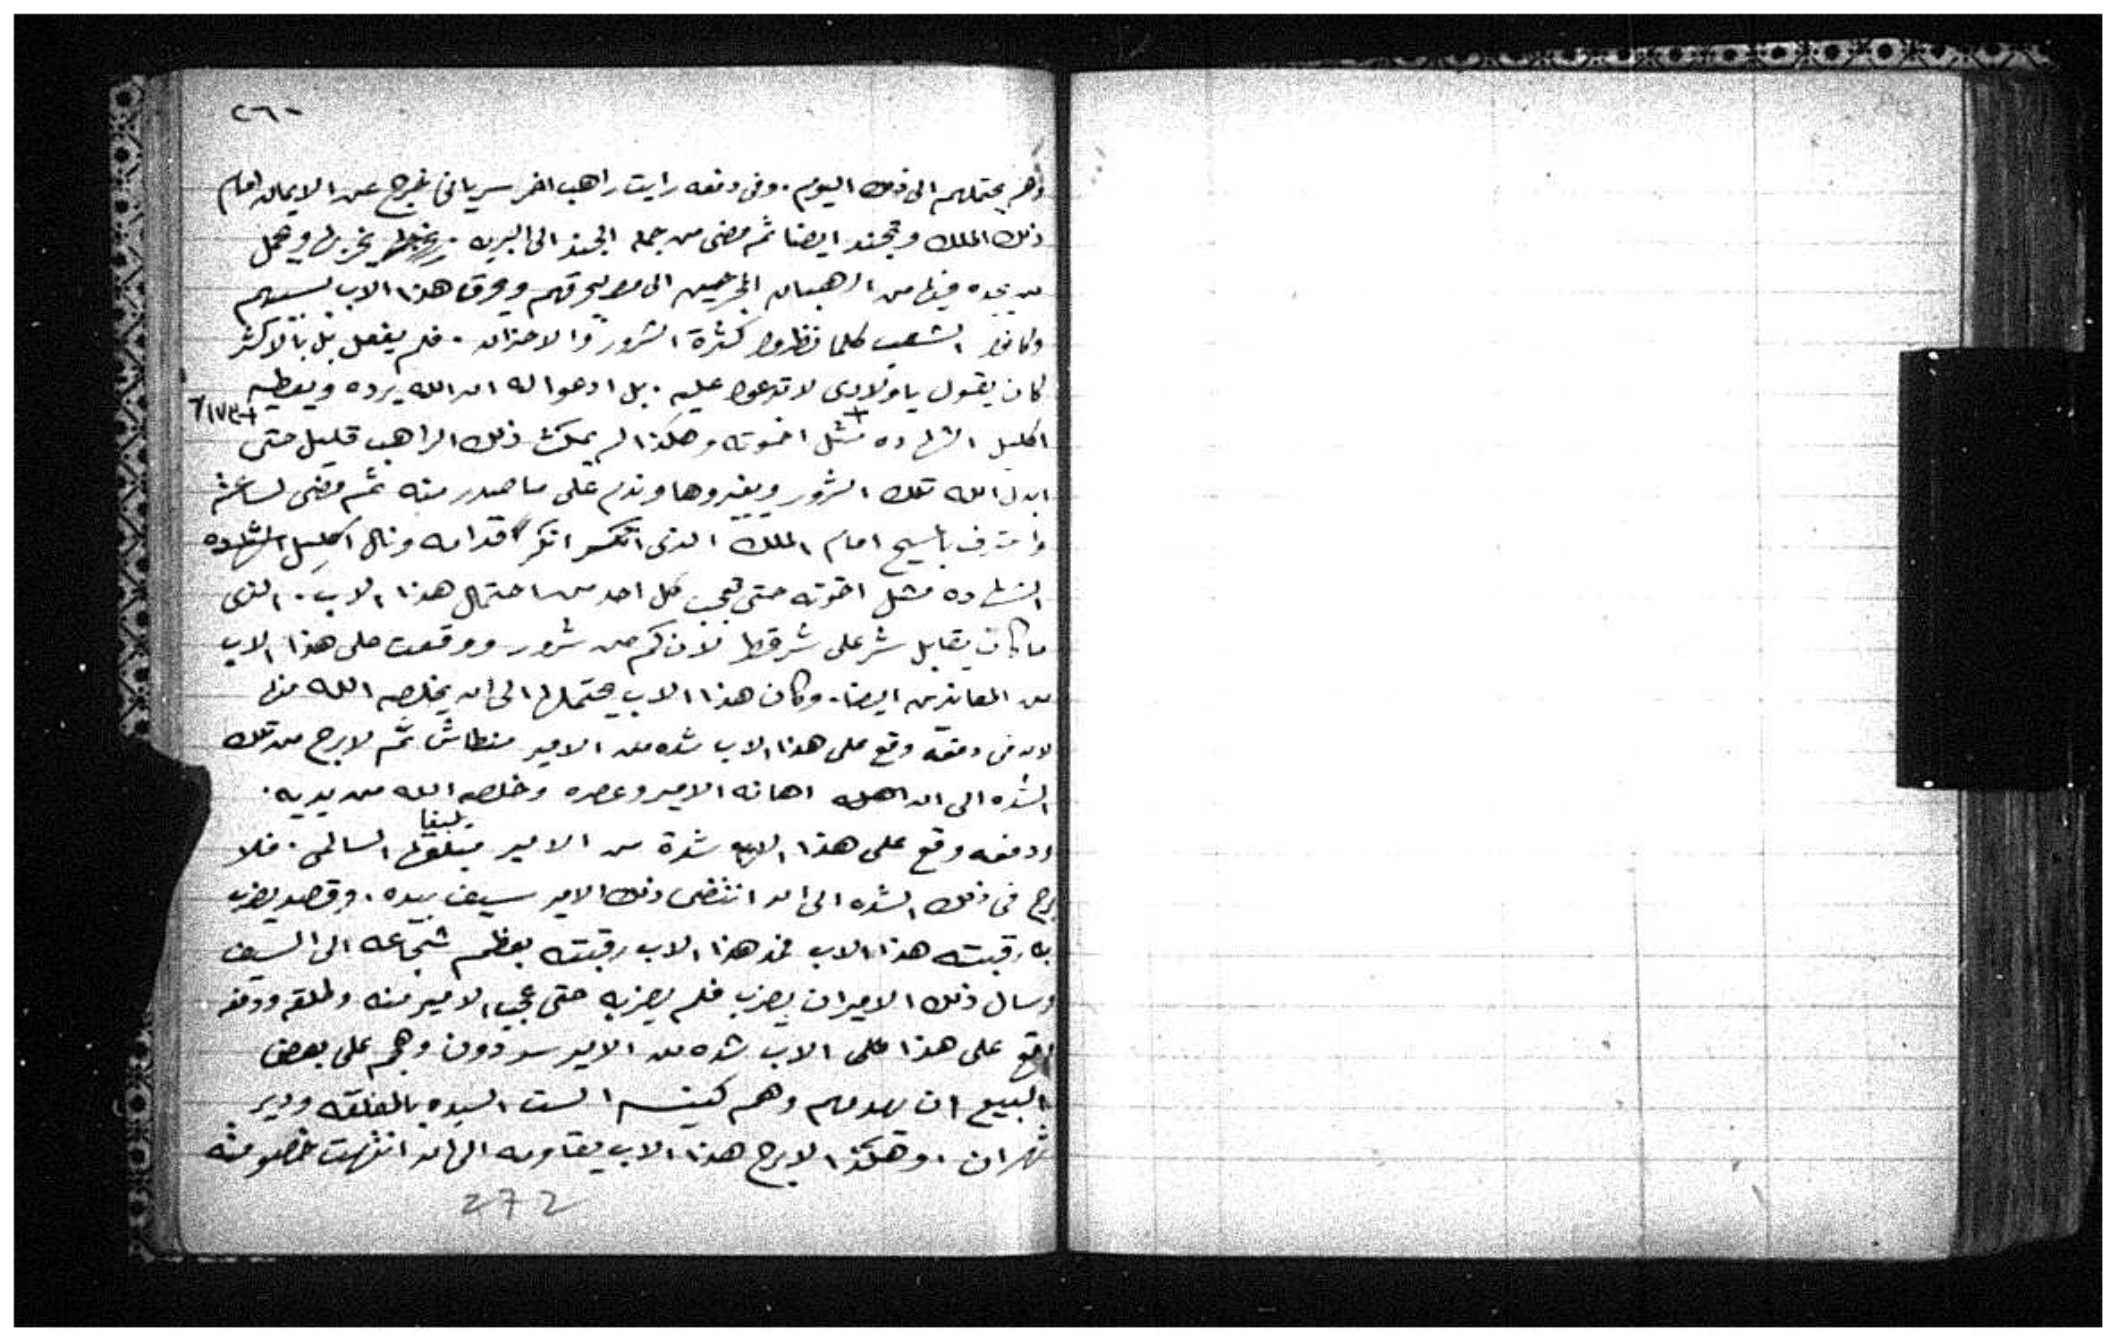 ٢٦٠
وهو يحتملهم الى ذلك اليوم. وفى دفعه رايت راهب اخر سريانى خرج عن الايمان امام
ذلك الملك وتجند ايضا ثم مضى من جملة الجند الى البريه. يخربها ويحمل
من يجده فيها من الرهبان الى مصر ليحرقهم ويحرق هذا الاب بسببهم
وكانوا الشعب كلما نظروا كثرة الشرور والاحزان. فلم يفعل بل بالاكثر
كان يقول ياولادى لا تدعوا عليه. بل ادعوا له ان الله يرده ويعطيه
اكليل الشهاده + مثل اخوته وهكذا لم يمكث ذلك الراهب قليل حتى
ابدل الله تلك الشرور ويغيروها وندم على ما صدر منه ثم مضى لساعته
واعترف بالمسيح امام الملك الذى انكر قدامه ونال اكليل الشهاده
الشهاده مثل اخوته حتى تعجب كل احد من احتمال هذا الاب. الذى
ما كان يقابل شر على شر قط لان كم من شرور ووقعت على هذا الاب
من المعاندين ايضا. وكان هذا الاب يحتملها الى ان يخلصه الله منها
لان فى دفعه وقع على هذا الاب شده من الامير منطاش ثم لابرح من تلك
الشده الى ان اهانه الامير وعصره وخلصه الله من يديه.
ودفعه وقع على هذا الاب شدة من الامير يلبغا السالمى. فلا
برح فى ذلك الشده الى ان انتضى ذلك الامير سيف بيده. وقصد يضرب
به رقبته هذا الاب فمد هذا الاب رقبته بعظم شجاعه الى السيف
وسال ذلك الامير ان يضرب فلم يضربه حتى عجب الامير منه واطلقه ودفعه
وقع على هذا الاب شده من الامير سودون وهجم على بعض
البيع ان يهدمهم وهم كنيسة الست السيده بالمعلقه ودير
شهران. وهكذا لابرح هذا الاب يقاومه الى ان انتهت خصومته
272